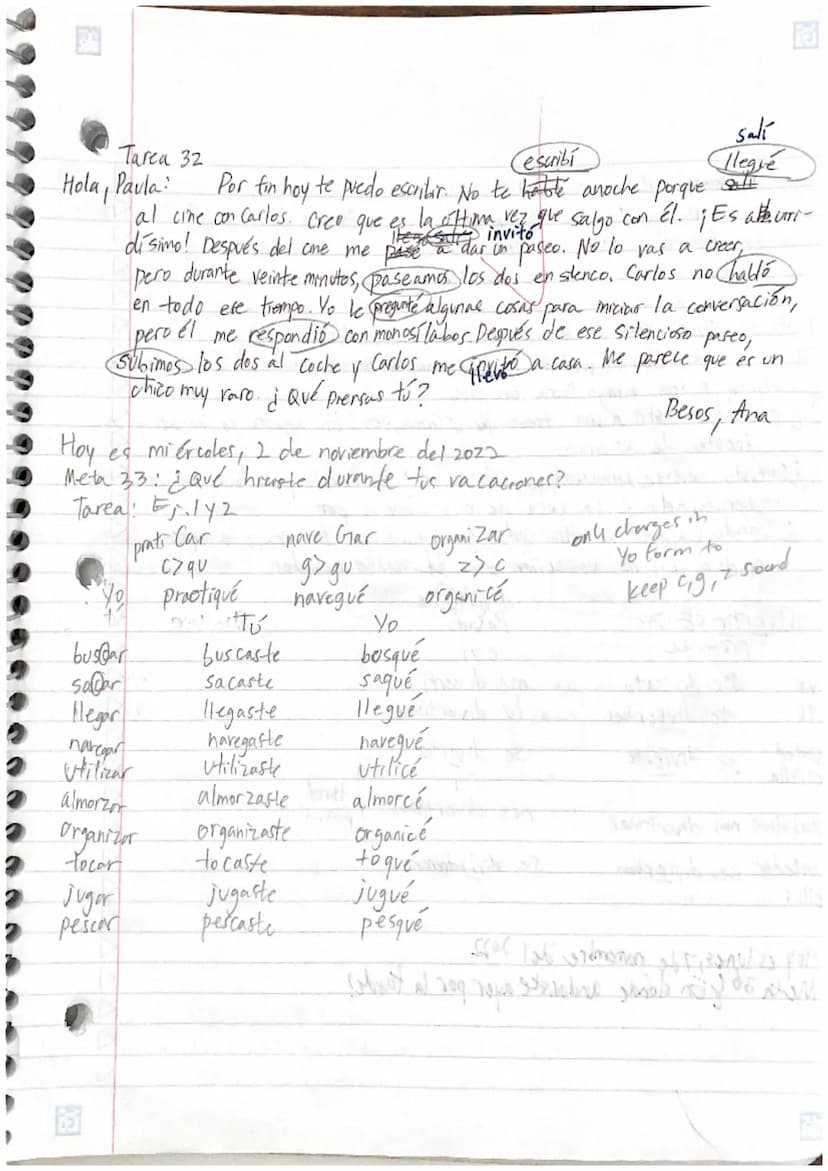 salí
Tarea 32 escribí llegué
Hola, Paula: Por fin hoy te puedo escribir. No te hablé anoche porque salí
al cine con Carlos. Creo que es la última vez que salgo con él. ¡Es aburri-
dísimo! Después del cine me invitó a dar un paseo. No lo vas a creer,
pero durante veinte minutos, paseamos los dos en silenco. Carlos no habló
en todo ese tiempo. Yo le pregunté algunas cosas para iniciar la conversación,
pero él me respondió con monosílabos. Después de ese silencioso paseo,
subimos los dos al coche y Carlos me invitó llevó a casa. Me parece que es un
chico muy raro. ¿Qué piensas tú?
Besos, Ana
Hoy es miércoles, 2 de noviembre del 2022
Meta 33: ¿Qué hiciste durante tus vacaciones?
Tarea: Ej. 1 y 2
prati Car nave Gar organi Zar only changes in
c>qu g>gu z>c Yo form to
Yo practiqué navegué organicé keep c, g, z sound
tú Tú Yo
busCar buscaste bosqué
saCar sacaste saqué
llegar llegaste llegué
navegar navegaste navegué
utilizar utilizaste utilicé
almorzar almorzaste almorcé
organizar organizaste organicé
tocar tocaste toqué
jugar jugaste jugué
pescar pescaste pesqué